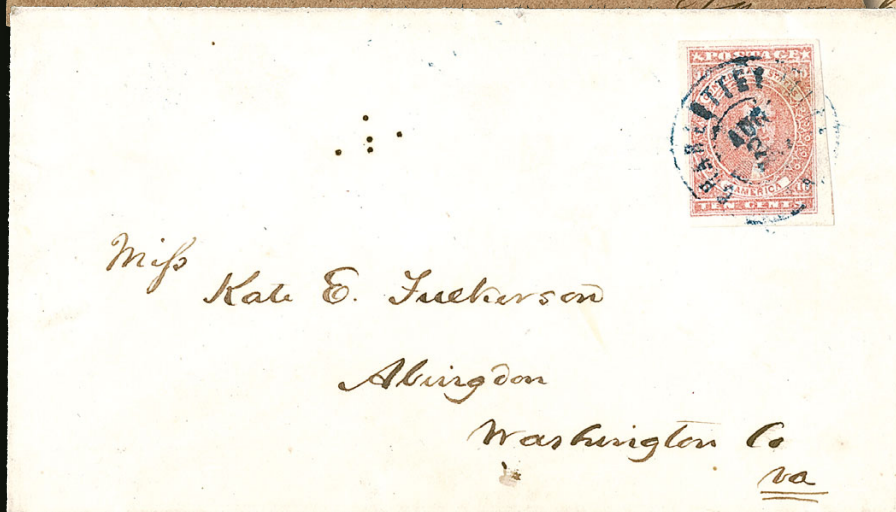 POSTAGE
AMERICA
TEN CENTS
Miss
Kate E. Fulkerson
Abingdon
Washington Co
va